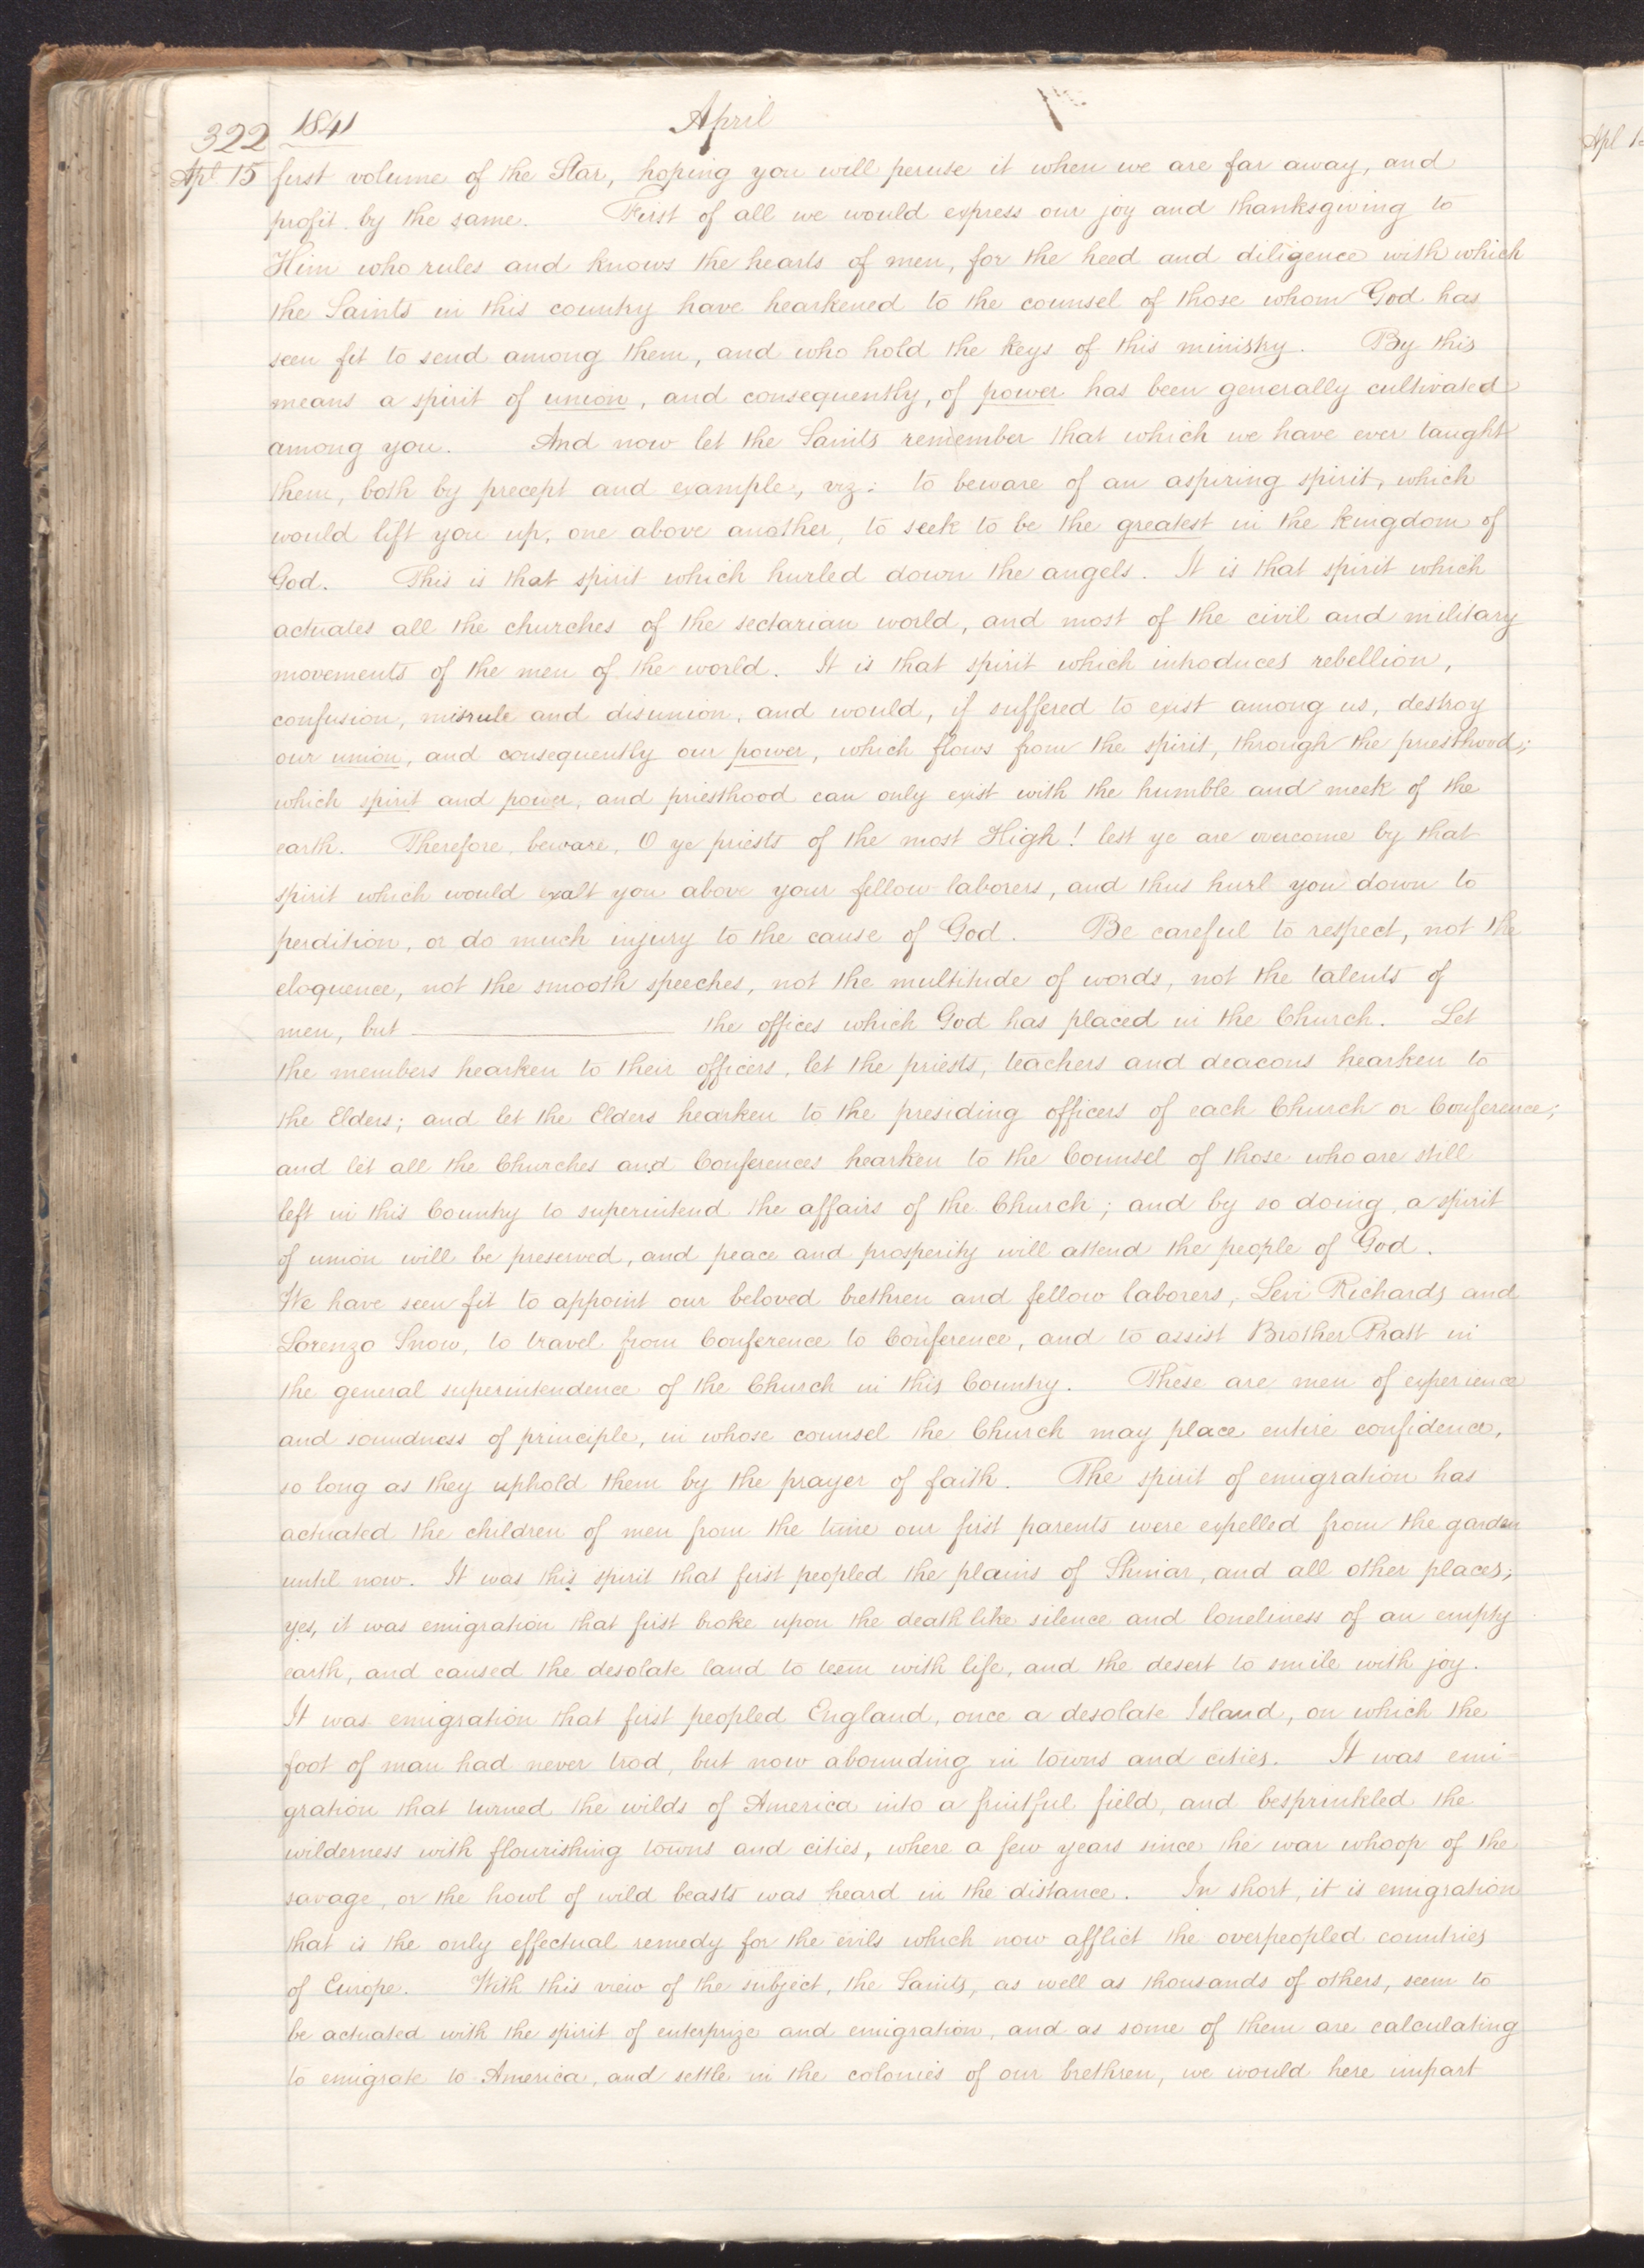 322 1841 April
Apl 15 first volume of the Star, hoping you will peruse it when we are far away, and
profit by the same. First of all we would express our joy and thanksgiving to
Him who rules and knows the hearts of men, for the heed and diligence with which
the Saints in this country have hearkened to the counsel of those whom God has
seen fit to send among them, and who hold the Keys of this ministry. By this
means a spirit of union, and consequently, of power has been generally cultivated
among you. And now let the Saints remember that which we have ever taught
them, both by precept and example, viz: to beware of an aspiring spirit, which
would lift you up, one above another, to seek to be the greatest in the kingdom of
God. This is that spirit which hurled down the angels. It is that spirit which
actuates all the churches of the sectarian world, and most of the civil and military
movements of the men of the world. It is that spirit which introduces rebellion,
confusion, misrule and disunion, and would, if suffered to exist among us, destroy
our union, and consequently our power, which flows from the spirit, through the priesthood;
which spirit and power, and priesthood can only exist with the humble and meek of the
earth. Therefore, beware, O ye priests of the most High! lest ye are overcome by that
spirit which would exalt you above your fellow-laborers, and thus hurl you down to
perdition, or do much injury to the cause of God. Be careful to respect, not the
eloquence, not the smooth speeches, not the multitude of words, not the talents of
men, but ——— the offices which God has placed in the Church. Let
the members hearken to their officers, let the priests, teachers and deacons hearken to
the Elders; and let the Elders hearken to the presiding officers of each Church or Conference;
and let all the Churches and Conferences hearken to the Counsel of those who are still
left in this Country to superintend the affairs of the Church; and by so doing, a spirit
of union will be preserved, and peace and prosperity will attend the people of God.
We have seen fit to appoint our beloved brethren and fellow laborers, Levi Richards and
Lorenzo Snow, to travel from Conference to Conference, and to assist Brother Pratt in
the general superintendence of the Church in this Country. These are men of experience
and soundness of principle, in whose counsel the Church may place entire confidence,
so long as they uphold them by the prayer of faith. The spirit of emigration has
actuated the children of men from the time our first parents were expelled from the garden
until now. It was this spirit that first peopled the plains of Shinar, and all other places;
yes, it was emigration that first broke upon the death like silence and loneliness of an empty
earth, and caused the desolate land to teem with life, and the desert to smile with joy.
It was emigration that first peopled England, once a desolate Island, on which the
foot of man had never trod, but now abounding in towns and cities. It was emi
gration that turned the wilds of America into a fruitful field, and besprinkled the
wilderness with flourishing towns and cities, where a few years since the war whoop of the
savage, or the howl of wild beasts was heard in the distance. In short, it is emigration
that is the only effectual remedy for the evils which now afflict the overpeopled countries
of Europe. With this view of the subject, the Saints, as well as thousands of others, seem to
be actuated with the spirit of enterprize and emigration, and as some of them are calculating
to emigrate to America, and settle in the colonies of our brethren, we would here impart